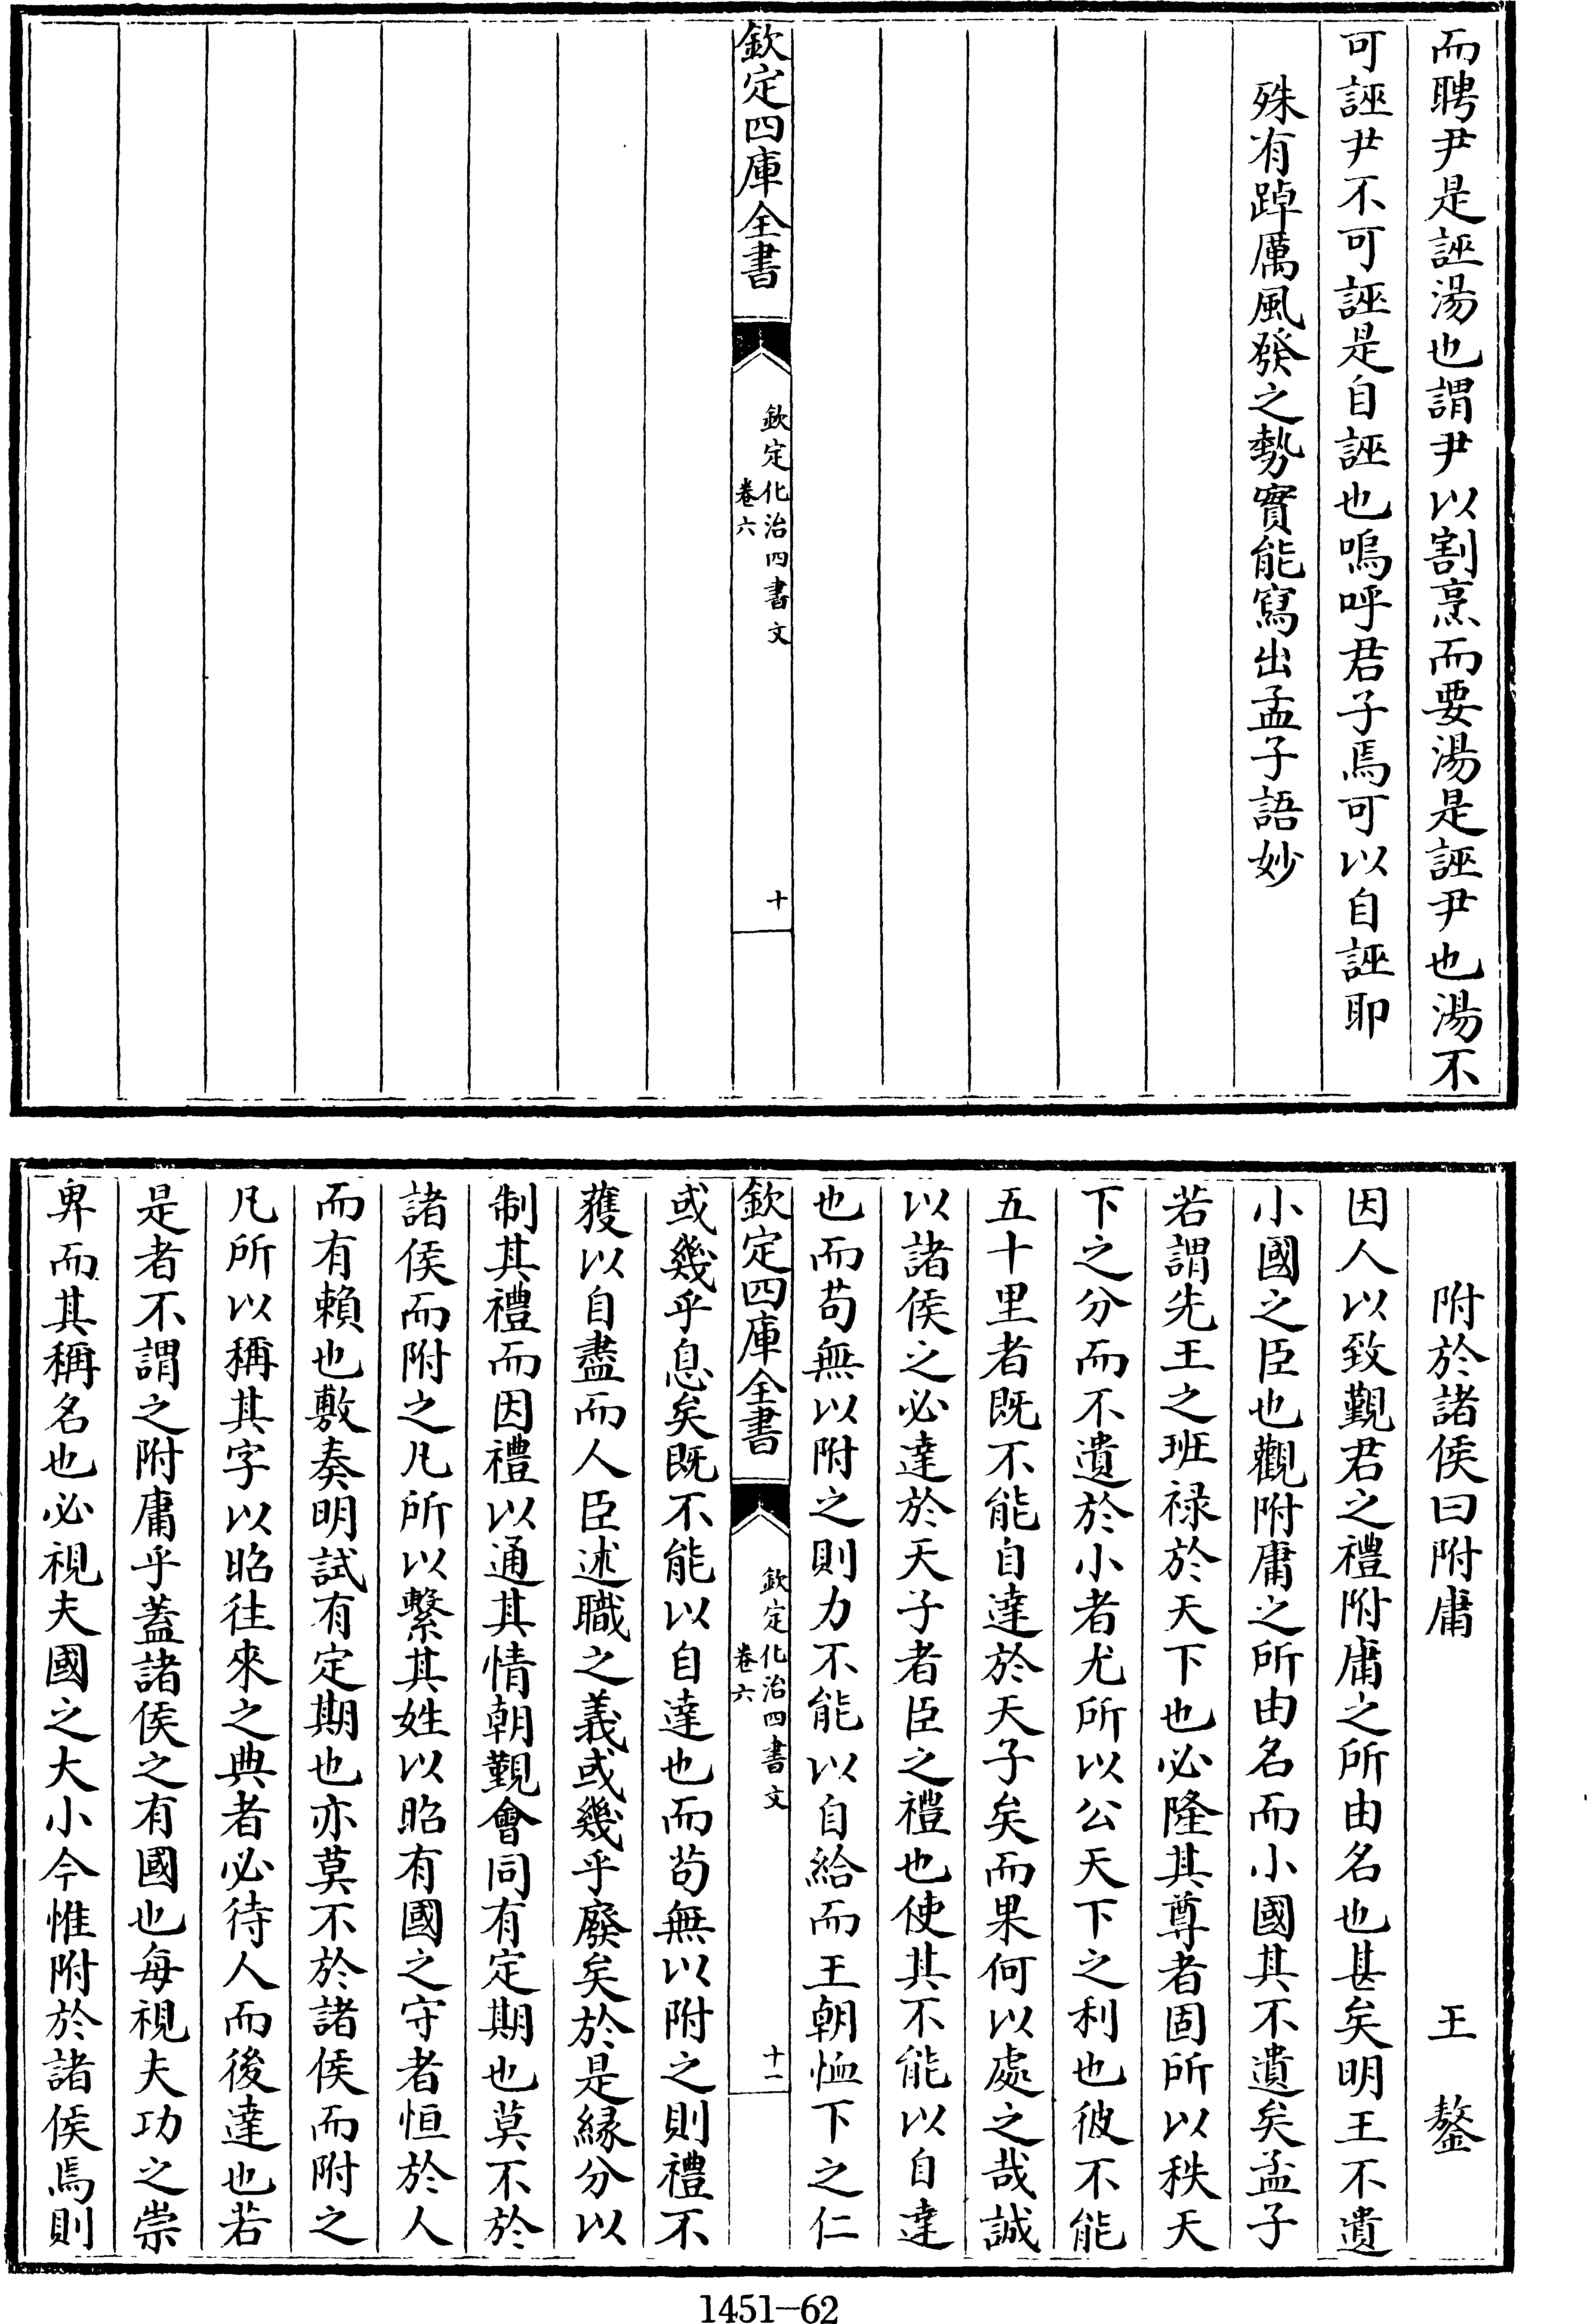 而聘尹是誣湯也謂尹以割烹而要湯是誣尹也湯不
可誣尹不可誣是自誣也嗚呼君子焉可以自誣耶
殊有踔厲風發之勢實能寫出孟子語妙
欽定四庫全書
欽定化治四書文
卷六
十
附於諸侯曰附庸 王鏊
因人以致覲君之禮附庸之所由名也甚矣明王不遺
小國之臣也觀附庸之所由名而小國其不遺矣孟子
若謂先王之班禄於天下也必隆其尊者固所以秩天
下之分而不遺於小者尤所以公天下之利也彼不能
五十里者既不能自達於天子矣而果何以處之哉誠
以諸侯之必達於天子者臣之禮也使其不能以自達
也而苟無以附之則力不能以自給而王朝恤下之仁
欽定四庫全書
欽定化治四書文
卷六
十一
或幾乎息矣既不能以自達也而苟無以附之則禮不
獲以自盡而人臣述職之義或幾乎廢矣於是緣分以
制其禮而因禮以通其情朝覲會同有定期也莫不於
諸侯而附之凡所以繫其姓以昭有國之守者恒於人
而有賴也敷奏明試有定期也亦莫不於諸侯而附之
凡所以稱其字以昭往來之典者必待人而後達也若
是者不謂之附庸乎蓋諸侯之有國也每視夫功之崇
卑而其稱名也必視夫國之大小今惟附於諸侯焉則
1451-62